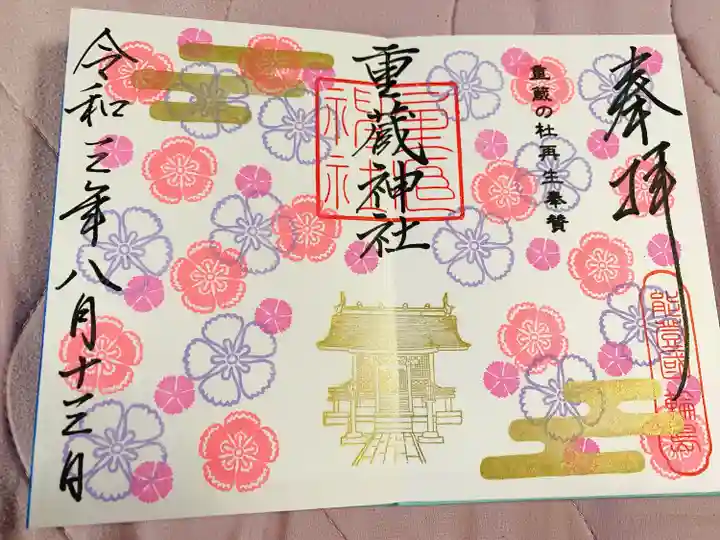 奉拝
重蔵の杜再生奉賛
能登國輪島
重蔵神社
令和三年八月十三日